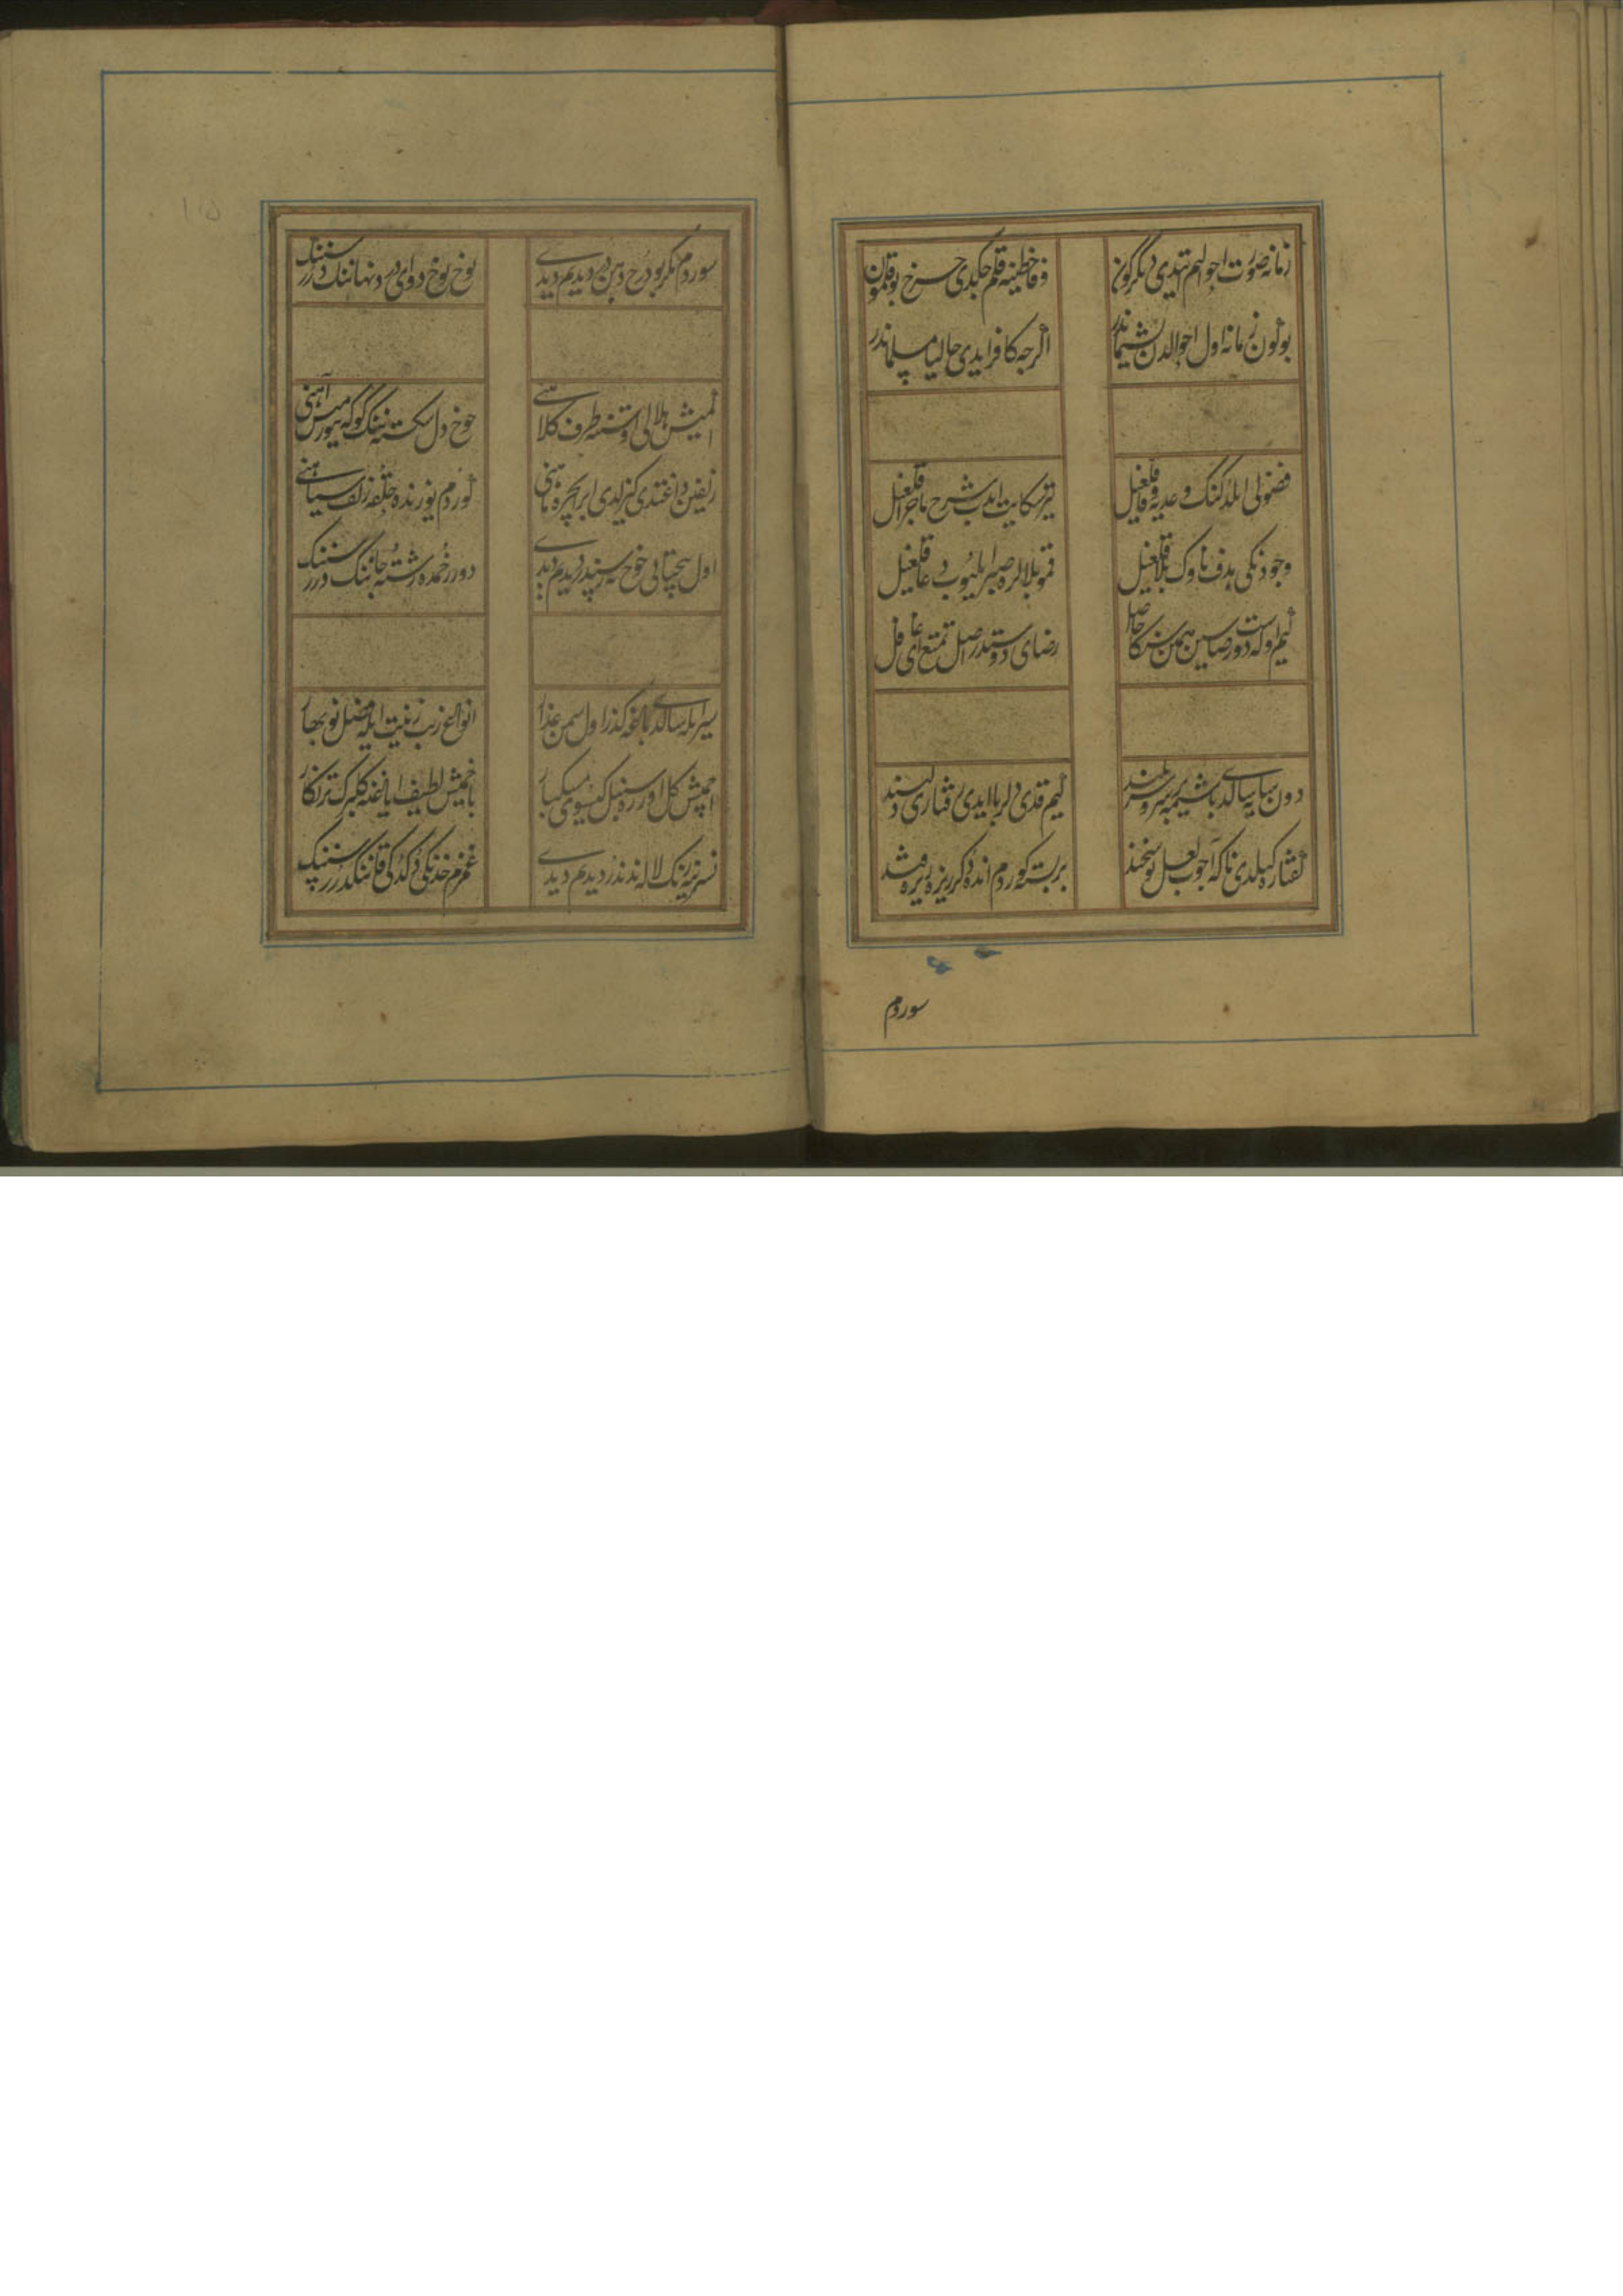 زمانه صورت احوالم ایتدی دیگرگون
وفا خطینه قلم چکدی چرخ بوقلمون
بوکون زمانه اول احوالدن پشیماندر
اگرجه کافر ایدی حالیا مسلماندر
فضولی ایلدکنک وعدیه وفا قلغیل
یتر شکایت ایدب شرح ماجرا قلغیل
وجودنکی هدف ناوک بلا قلغیل
قمو بلالره صبر ایلیوب دعا قلغیل
کیم اوله دوست رضاسین همن سنکا حاصل
رضای دوستدر اصل تمتع ای غافل
دون سایه سالدی باشیمه بر سرو سربلند
کیم قدی دلربا ایدی رفتاری دلپسند
گفتاره کیلدی ناکه آجوب لعل نوشخند
بر پسته کوردم انده دوکر ریزه ریزه قند
سوردم
سوردم مگر بو درج دهن در دیدم دیدی
یوخ یوخ دوای درد نهاننک درر سننک
اگمیش هلالی اوستنه طرف کلاهنی
چوخ دل شکسته ننک گوکه یتورمیش آهنی
زلفین داغتدی گیزلدی ابر ایچره ماهنی
گوردم یوزنده حلقه زلف سیاهنی
اول پیچتابی چوخ نه رسندر دیدم دیدی
دور رخمده رشته جاننک درر سننک
سیر ایله سالدی باغه گذر اول سمن عذار
انواع زیب زینت ایله فصل نوبهار
اچمیش گل اوزره سنبل گیسوی مشکبار
باخمیش لطیف ایاغنه گلبرگ تر نگار
نسرینه رنک لاله ندندر دیدم دیدی
غمزم خدنکی دوکدکی قاننکدرر سننک
۱۱۵